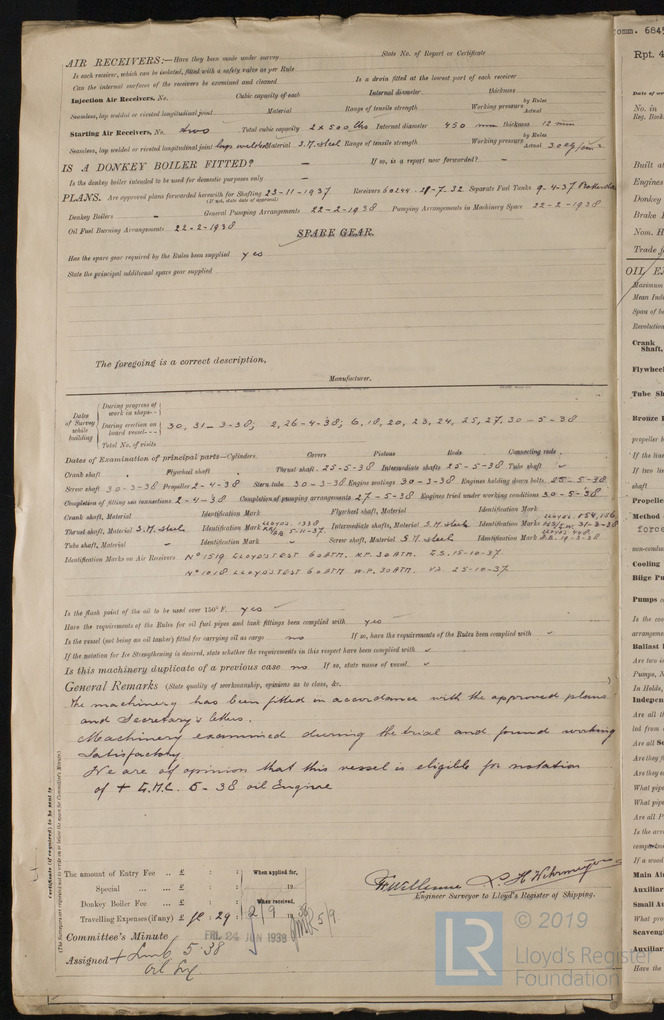 AIR RECEIVERS:—Have they been made under survey State No. of Report or Certificate
Is each receiver, which can be isolated, fitted with a safety valve as per Rule
Can the internal surfaces of the receivers be examined and cleaned Is a drain fitted at the lowest part of each receiver
Injection Air Receivers, No. Cubic capacity of each Internal diameter thickness
Seamless, lap welded or riveted longitudinal joint Material Range of tensile strength Working pressure by Rules Actual
Starting Air Receivers, No. two Total cubic capacity 2 x 500 lbs Internal diameter 450 mm thickness 12 mm
Seamless, lap welded or riveted longitudinal joint lap welded Material S.M. steel Range of tensile strength Working pressure by Rules Actual 30 kg/cm2
IS A DONKEY BOILER FITTED? — If so, is a report now forwarded? —
Is the donkey boiler intended to be used for domestic purposes only —
PLANS. Are approved plans forwarded herewith for Shafting 23-11-1937 Receivers 60244 -7-32 Separate Fuel Tanks 9-4-37
(If not, state date of approval)
Donkey Boilers — General Pumping Arrangements 22-2-1938 Pumping Arrangements in Machinery Space 22-2-1938
Oil Fuel Burning Arrangements 22-2-1938
SPARE GEAR.
Has the spare gear required by the Rules been supplied yes
State the principal additional spare gear supplied
The foregoing is a correct description,
Manufacturer.
Dates of Survey while building
During progress of work in shops - -
During erection on board vessel - - -
30, 31-3-38; 2, 26-4-38; 6, 18, 20, 23, 24, 25, 27, 30-5-38
Total No. of visits
Dates of Examination of principal parts—Cylinders Covers Pistons Rods Connecting rods
Crank shaft Flywheel shaft Thrust shaft 25-5-38 Intermediate shafts 25-5-38 Tube shaft
Screw shaft 30-3-38 Propeller 2-4-38 Stern tube 30-3-38 Engine seatings 30-3-38 Engines holding down bolts 25-5-38
Completion of fitting sea connections 2-4-38 Completion of pumping arrangements 27-5-38 Engines tried under working conditions 30-5-38
Crank shaft, Material Identification Mark Flywheel shaft, Material Identification Mark
Thrust shaft, Material S.M. steel Identification Mark LLOYDS 1338 5-11-37 Intermediate shafts, Material S.M. steel Identification Marks LLOYDS 154,156 31-3-38
Tube shaft, Material Identification Mark Screw shaft, Material S.M. steel Identification Mark 19-3-38
Identification Marks on Air Receivers No 1519 LLOYDS TEST 60 ATM. W.P. 30 ATM. E.S. 15-10-37
No 1018 LLOYDS TEST 60 ATM. W.P. 30 ATM. 25-10-37
Is the flash point of the oil to be used over 150° F. yes
Have the requirements of the Rules for oil fuel pipes and tank fittings been complied with yes
Is the vessel (not being an oil tanker) fitted for carrying oil as cargo no If so, have the requirements of the Rules been complied with
If the notation for Ice Strengthening is desired, state whether the requirements in this respect have been complied with
Is this machinery duplicate of a previous case no If so, state name of vessel.
General Remarks (State quality of workmanship, opinions as to class, &c.
The machinery has been fitted in accordance with the approved plans
and Secretary's letters.
Machinery examined during the trial and found working
satisfactory
We are of opinion that this vessel is eligible for notation
of + L.M.C. 5-38 oil Engine
Certificate (if required) to be sent to
(The Surveyors are requested not to write on or below the space for Committee's Minute.)
The amount of Entry Fee .. £ : : When applied for,
Special ... ... £ : : 19
Donkey Boiler Fee ... £ : : When received,
Travelling Expenses (if any) £ 29 : 12/9 1938 5/9.
Engineer Surveyor to Lloyd's Register of Shipping.
Committee's Minute FRI. 24 JUN 1938
Assigned + Lmb 5.38
Oil Eng
© 2019
LR
Lloyd's Register
Foundation
Rpt. 4
No. in
Reg. Book
Built at
Engines
Donkey
Brake
Nom. H
Trade
OIL E
Maximum
Mean Ind
Span of
Revolution
Crank
Shaft,
Flywheel
Tube Sh
Bronze
propeller
If the
If two
shaft
Propelle
Method
force
non-condu
Cooling
Bilge Pu
Pumps
Is the
arrangem
Ballast
Are two
Pumps,
In Holds,
Indepen
Are all
led from
Are all
Are they
Are they
What pip
What pip
Are all
Is the
If a
Main Air
Auxiliar
Small Au
What
Scaveng
Auxiliar
Have the